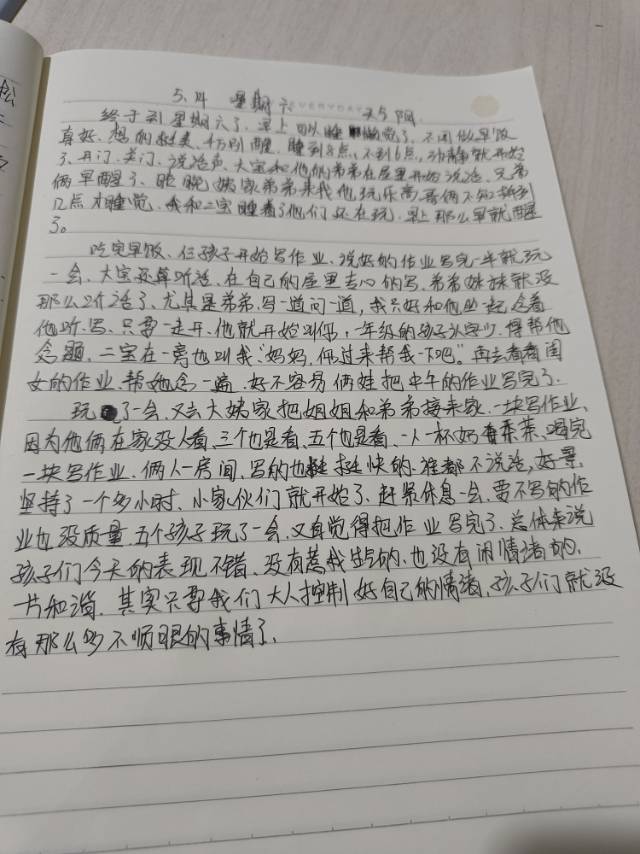 5.14 星期六 EVERYDAY 天气阴
终于到星期六了、早上可以睡懒觉了、不用做早饭
真好、想的挺美、千万别醒、睡到8点、不到6点、动静就开始
了、开门、关门、说话声、大宝和他的弟弟在屋里开始说话、兄弟
俩早醒了、昨晚姨家弟弟来找他玩乐高哥俩不知拆到
几点才睡觉、我和二宝睡着了他们还在玩、早上那么早就醒
了。
吃完早饭、仨孩子开始写作业、说好的作业写完一半就玩
一会、大宝还算听话、在自己的屋里专心的写、弟弟妹妹就没
那么听话了、尤其是弟弟、写一道问一道，我只好和他坐一起念着
他听、写、只要一走开、他就开始叫你，一年级的孩子认字少、得帮他
念题、二宝在一旁也叫我“妈妈，你过来帮我一下吧”再去看看闺
女的作业、帮她念一遍、好不容易俩娃把中午的作业写完了、
玩了一会、又去大姨家把姐姐和弟弟接来家、一块写作业、
因为他俩在家没人看、三个也是看、五个也是看、一人一杯奶茶、喝完
一块写作业、俩人一房间、写的也挺挺快的、谁都不说话，好景
坚持了一个多小时、小家伙们就开始了、赶紧休息一会、要不写的作
业也没质量、五个孩子玩了一会、又自觉得把作业写完了、总体来说
孩子们今天的表现不错、没有惹我生气的、也没有闹情绪的、
一片和谐、其实只要我们大人控制好自己的情绪、孩子们就没
有那么多不顺眼的事情了、